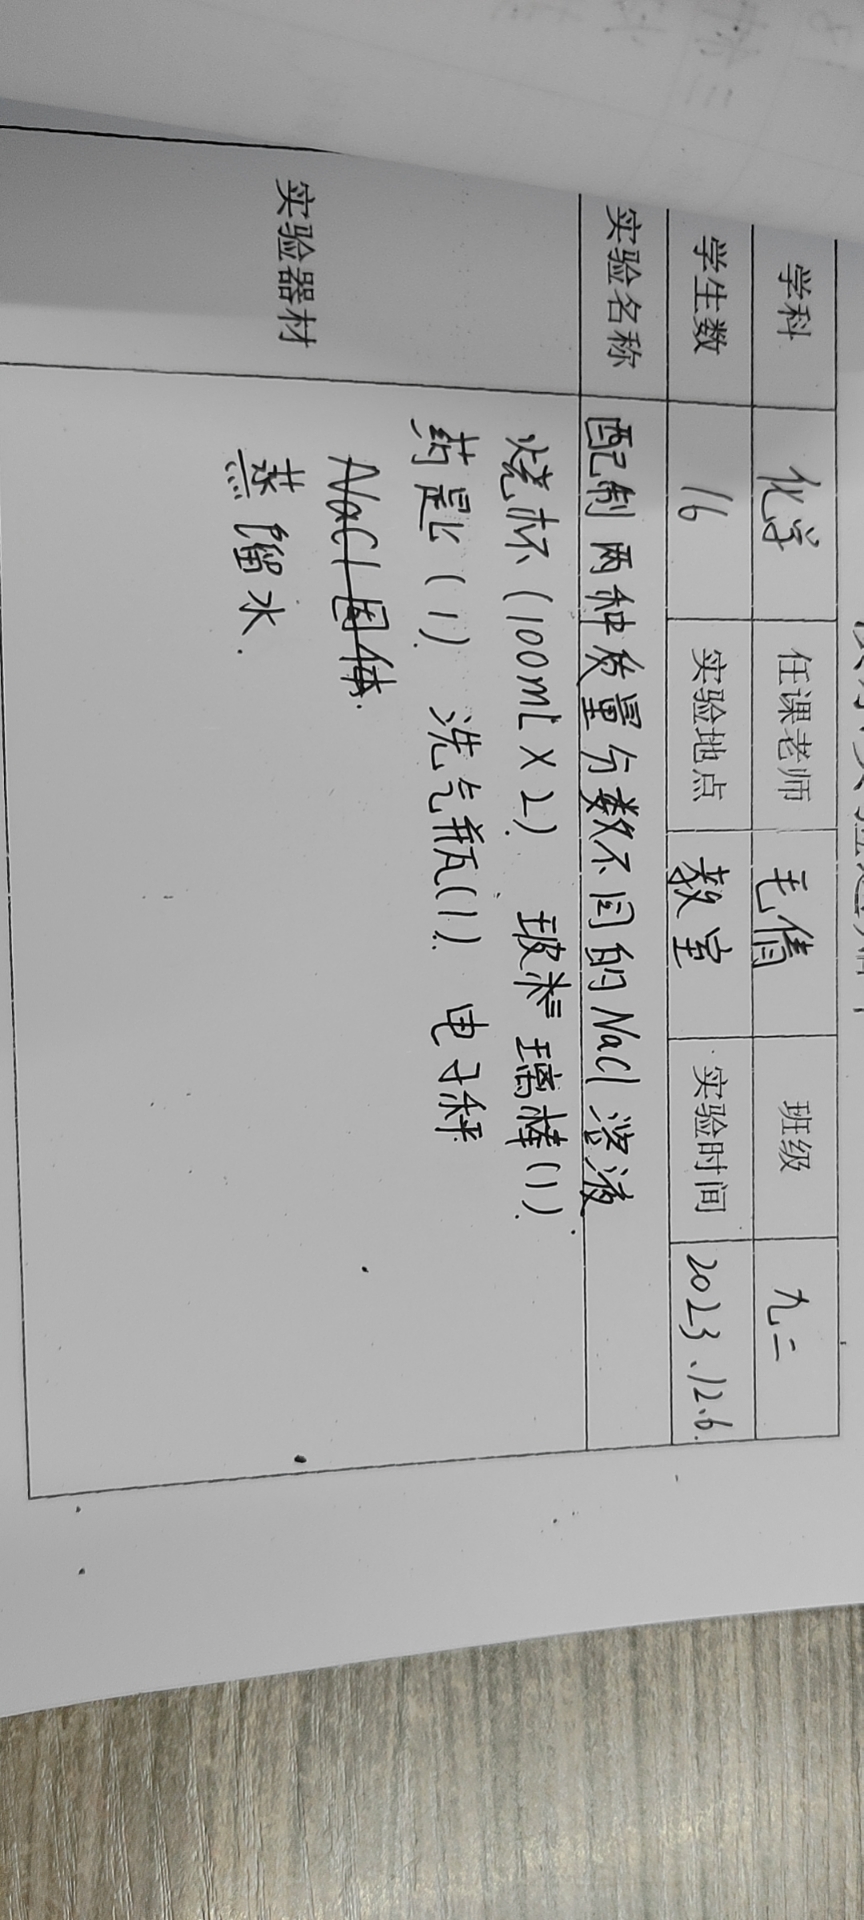 学科 化学 任课老师 毛倩 班级 九二
学生数 16 实验地点 教室 实验时间 2023.12.6.
实验名称 配制两种质量分数不同的NaCl溶液
实验器材
烧杯(100mL×2) 玻璃棒(1).
药匙(1) 洗气瓶(1). 电子秤
NaCl固体.
蒸馏水.